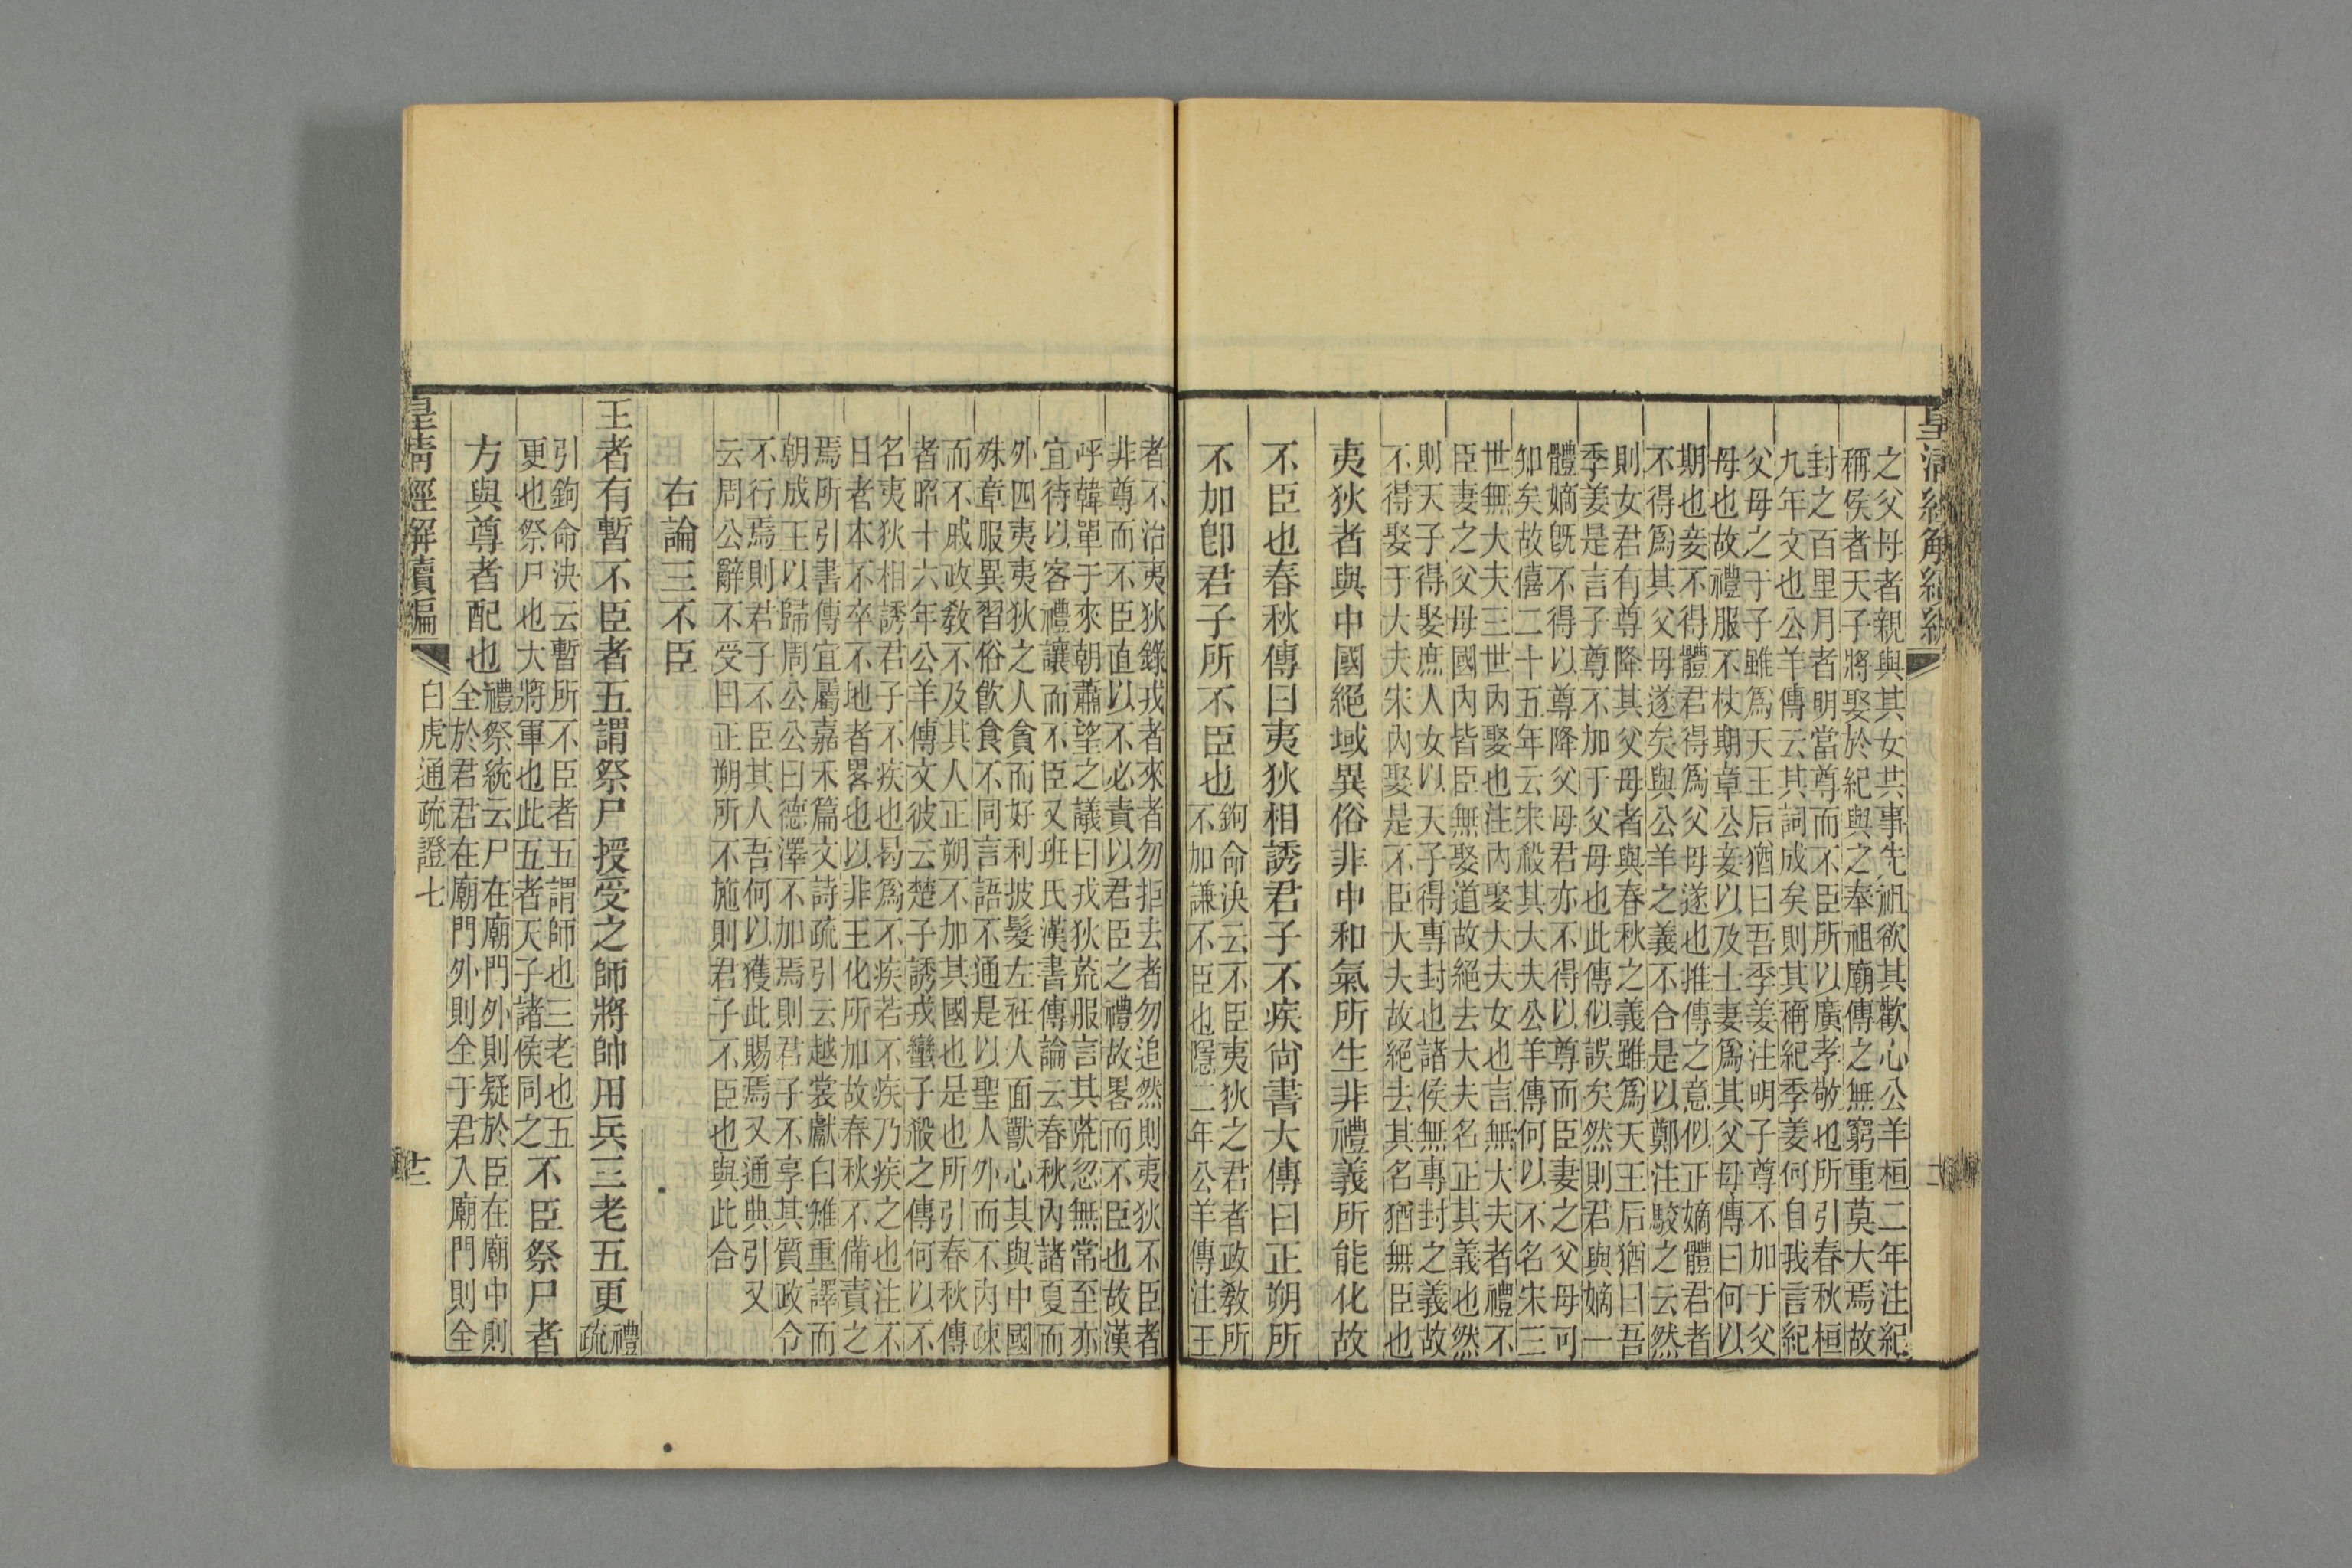 之父母者親與其女共事先祖欲其歡心公羊桓二年注紀
稱侯者天子將娶於紀與之奉祖廟傳之無窮重莫大焉故
封之百里月者明當尊而不臣所以廣孝敬也所引春秋桓
九年文也公羊傳云其詞成矣則其稱紀季姜何自我言紀
父母之于子雖爲天王后猶曰吾季姜注明子尊不加于父
母也故禮服不杖期章公妾以及士妻爲其父母傳曰何以
期也妾不得體君得爲父母遂也推傳之意似正嫡體君者
不得爲其父母遂矣與公羊之義不合是以鄭注駮之云然
則女君有尊降其父母者與春秋之義雖爲天王后猶曰吾
季姜是言子尊不加于父母也此傳似誤矣然則君與嫡一
體嫡旣不得以尊降父母君亦不得以尊而臣妻之父母可
知矣故僖二十五年云宋殺其大夫公羊傳何以不名宋三
世無大夫三世內娶也注內娶大夫女也言無大夫者禮不
臣妻之父母國內皆臣無娶道故絕去大夫名正其義也然
則天子得娶庶人女以天子得專封也諸侯無專封之義故
不得娶于大夫宋內娶是不臣大夫故絕去其名猶無臣也
夷狄者與中國絕域異俗非中和氣所生非禮義所能化故
不臣也春秋傳曰夷狄相誘君子不疾尙書大傳曰正朔所
不加卽君子所不臣也
鉤命決云不臣夷狄之君者政敎所
不加謙不臣也隱二年公羊傳注王
者不治夷狄錄戎者來者勿拒去者勿追然則夷狄不臣者
非尊而不臣直以不必責以君臣之禮故畧而不臣也故漢
呼韓單于來朝蕭望之議曰戎狄荒服言其荒忽無常至亦
宜待以客禮讓而不臣又班氏漢書傳論云春秋內諸夏而
外四夷夷狄之人貪而好利披髮左衽人面獸心其與中國
殊章服異習俗飮食不同言語不通是以聖人外而不內疎
而不戚政敎不及其人正朔不加其國也是也所引春秋傳
者昭十六年公羊傳文彼云楚子誘戎蠻子殺之傳何以不
名夷狄相誘君子不疾也曷爲不疾若不疾乃疾之也注不
日者本不卒不地者畧也以非王化所加故春秋不備責之
焉所引書傳宜屬嘉禾篇文詩疏引云越裳獻白雉重譯而
朝成王以歸周公公曰德澤不加焉則君子不享其質政令
不行焉則君子不臣其人吾何以獲此賜焉又通典引又
云周公辭不受曰正朔所不施則君子不臣也與此合
右論三不臣
王者有暫不臣者五謂祭尸授受之師將帥用兵三老五更
禮
疏
引鉤命決云暫所不臣者五謂師也三老也五
更也祭尸也大將軍也此五者天子諸侯同之
不臣祭尸者
方與尊者配也
禮祭統云尸在廟門外則疑於臣在廟中則
全於君君在廟門外則全于君入廟門則全
皇清經解續編
白虎通疏證七
十二